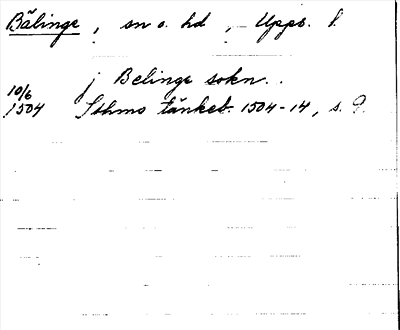 Bälinge, sn o. hd, Upps. l.
j Belinge sokn.
10/6
1504 Sthms tänkeb. 1504-14, s. 9.